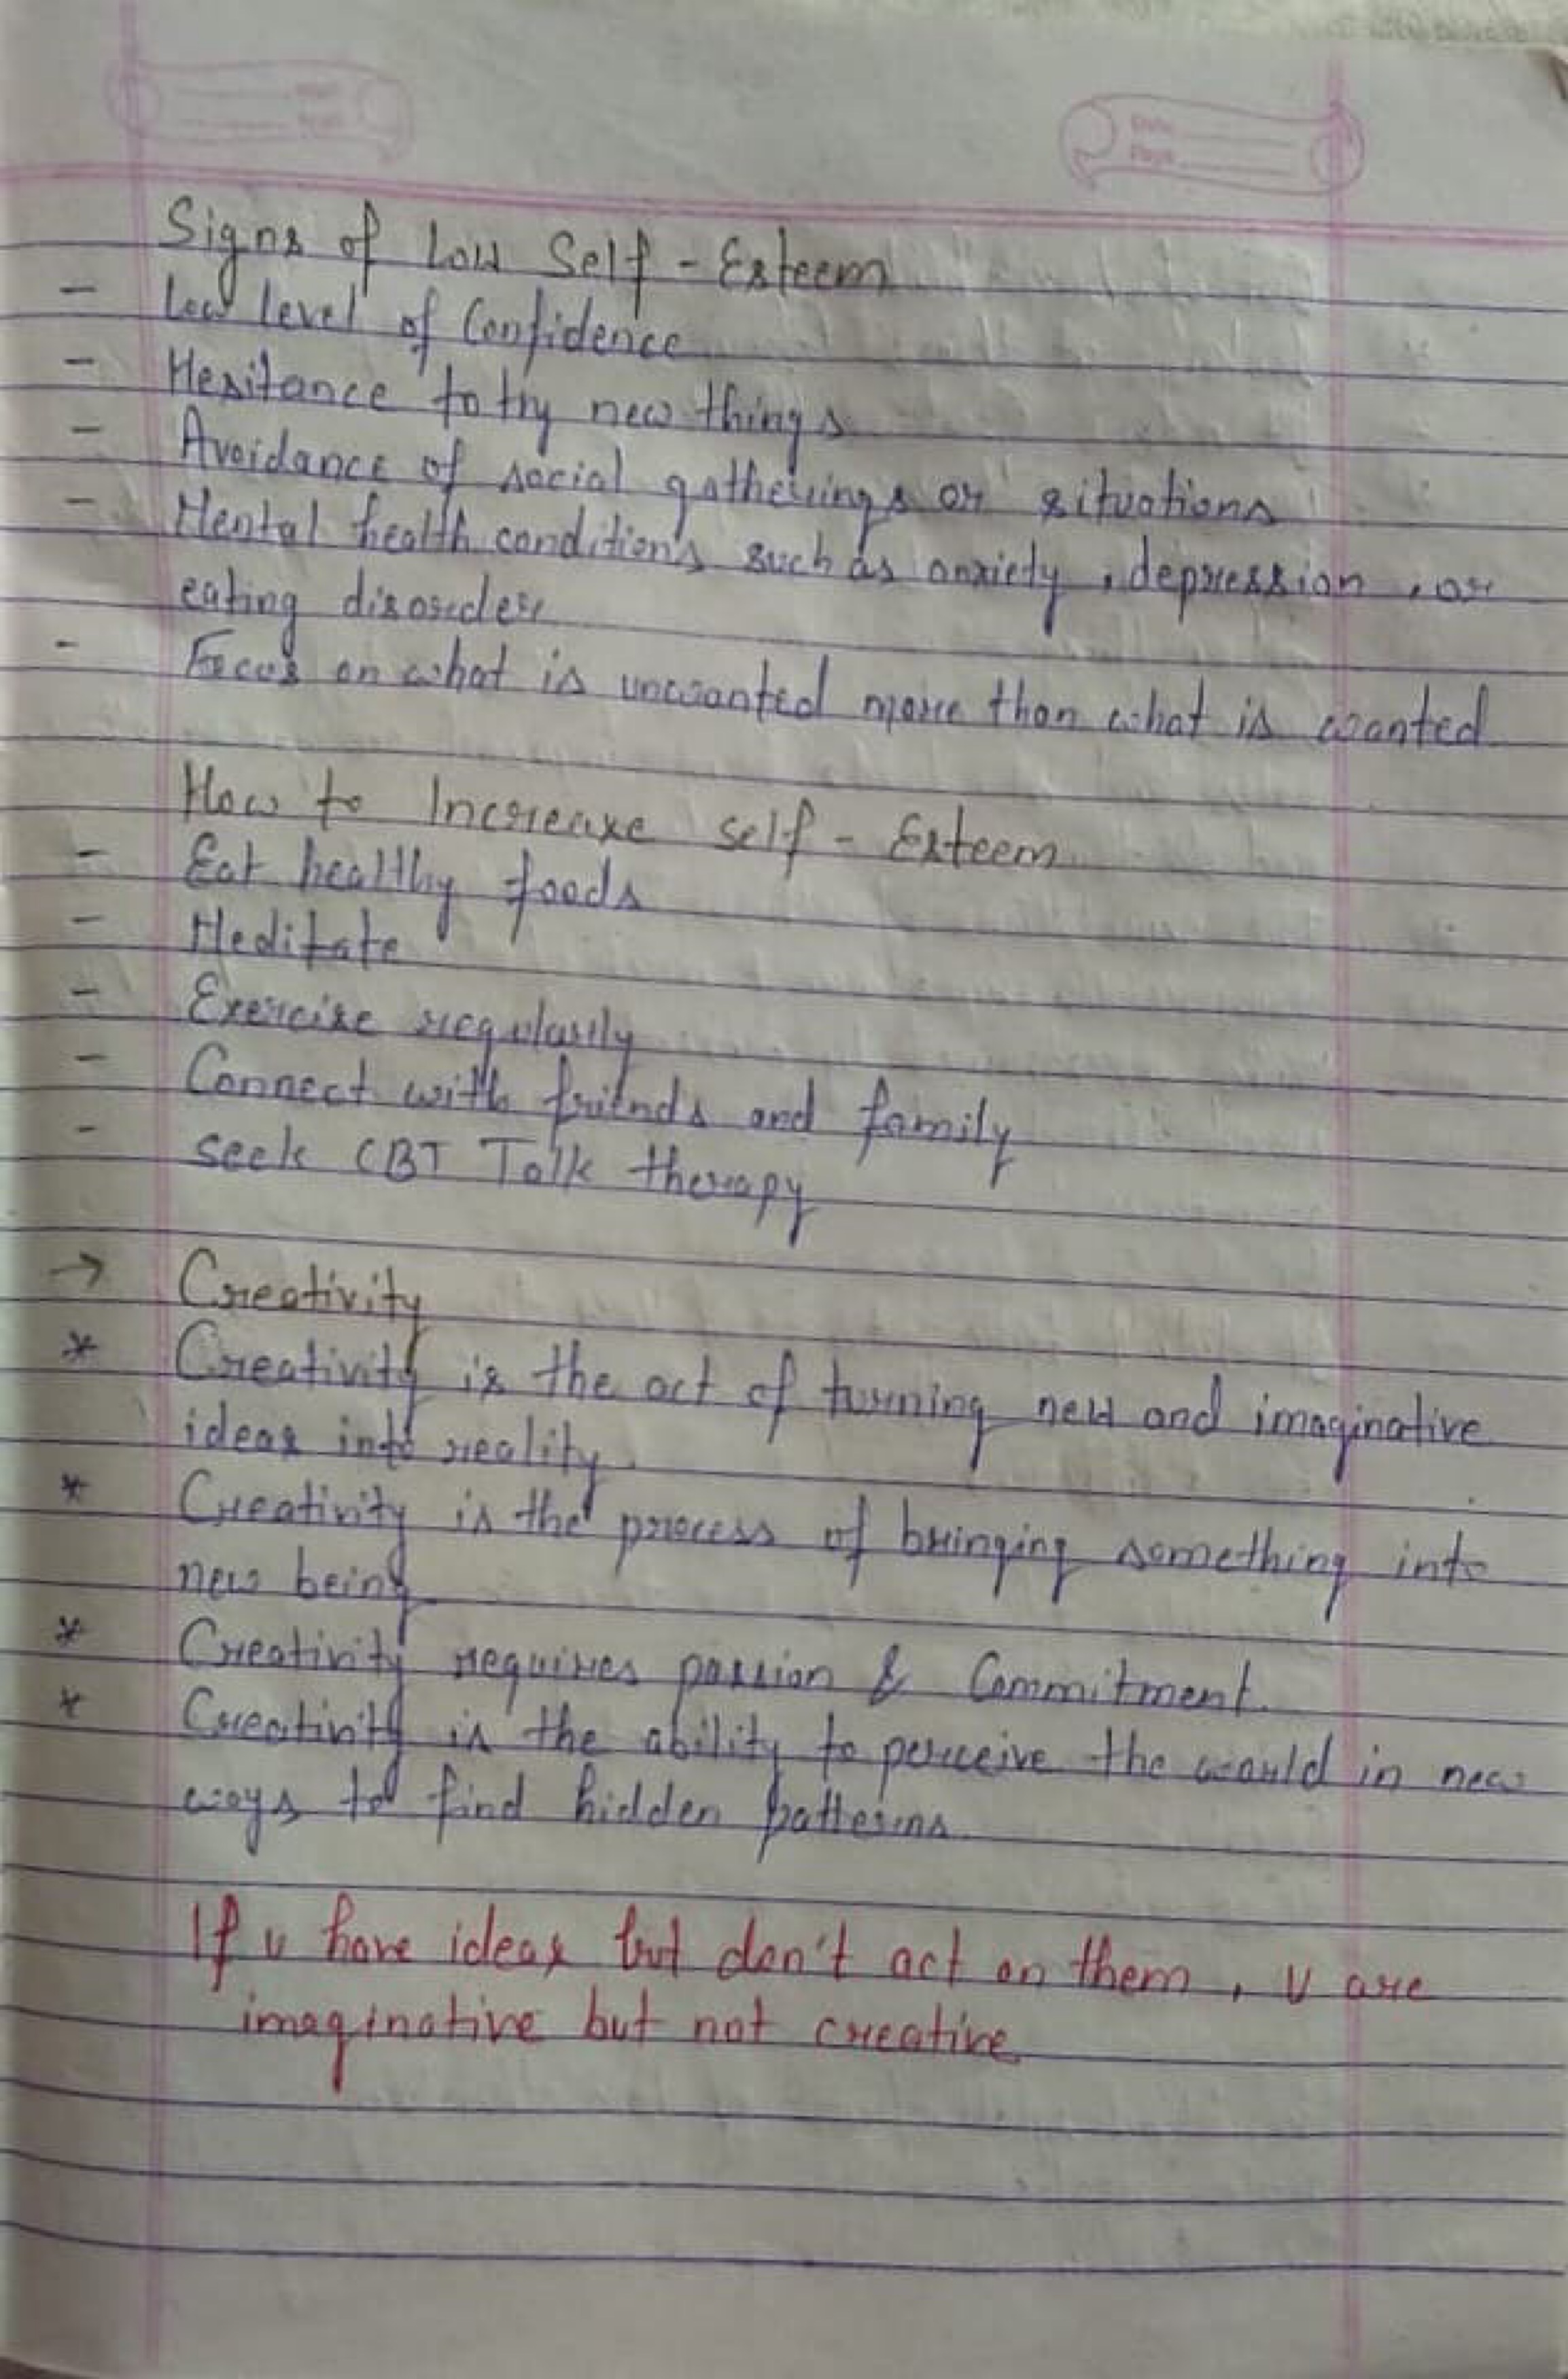 Date
Page
Signs of Low Self - Esteem
- Low level of Confidence
- Hesitance to try new things
- Avoidance of social gatherings or situations
- Mental health conditions such as anxiety, depression, or
eating disorder
- Focus on what is unwanted more than what is wanted
How to Increase self - Esteem
- Eat healthy foods
- Meditate
- Exercise regularly
- Connect with friends and family
- seek CBT Talk therapy
→ Creativity
* Creativity is the act of turning new and imaginative
ideas into reality.
* Creativity is the process of bringing something into
new being
* Creativity requires passion & Commitment.
* Creativity is the ability to perceive the would in new
ways to find hidden patterns.
If u have ideas but don't act on them, U are
imaginative but not creative